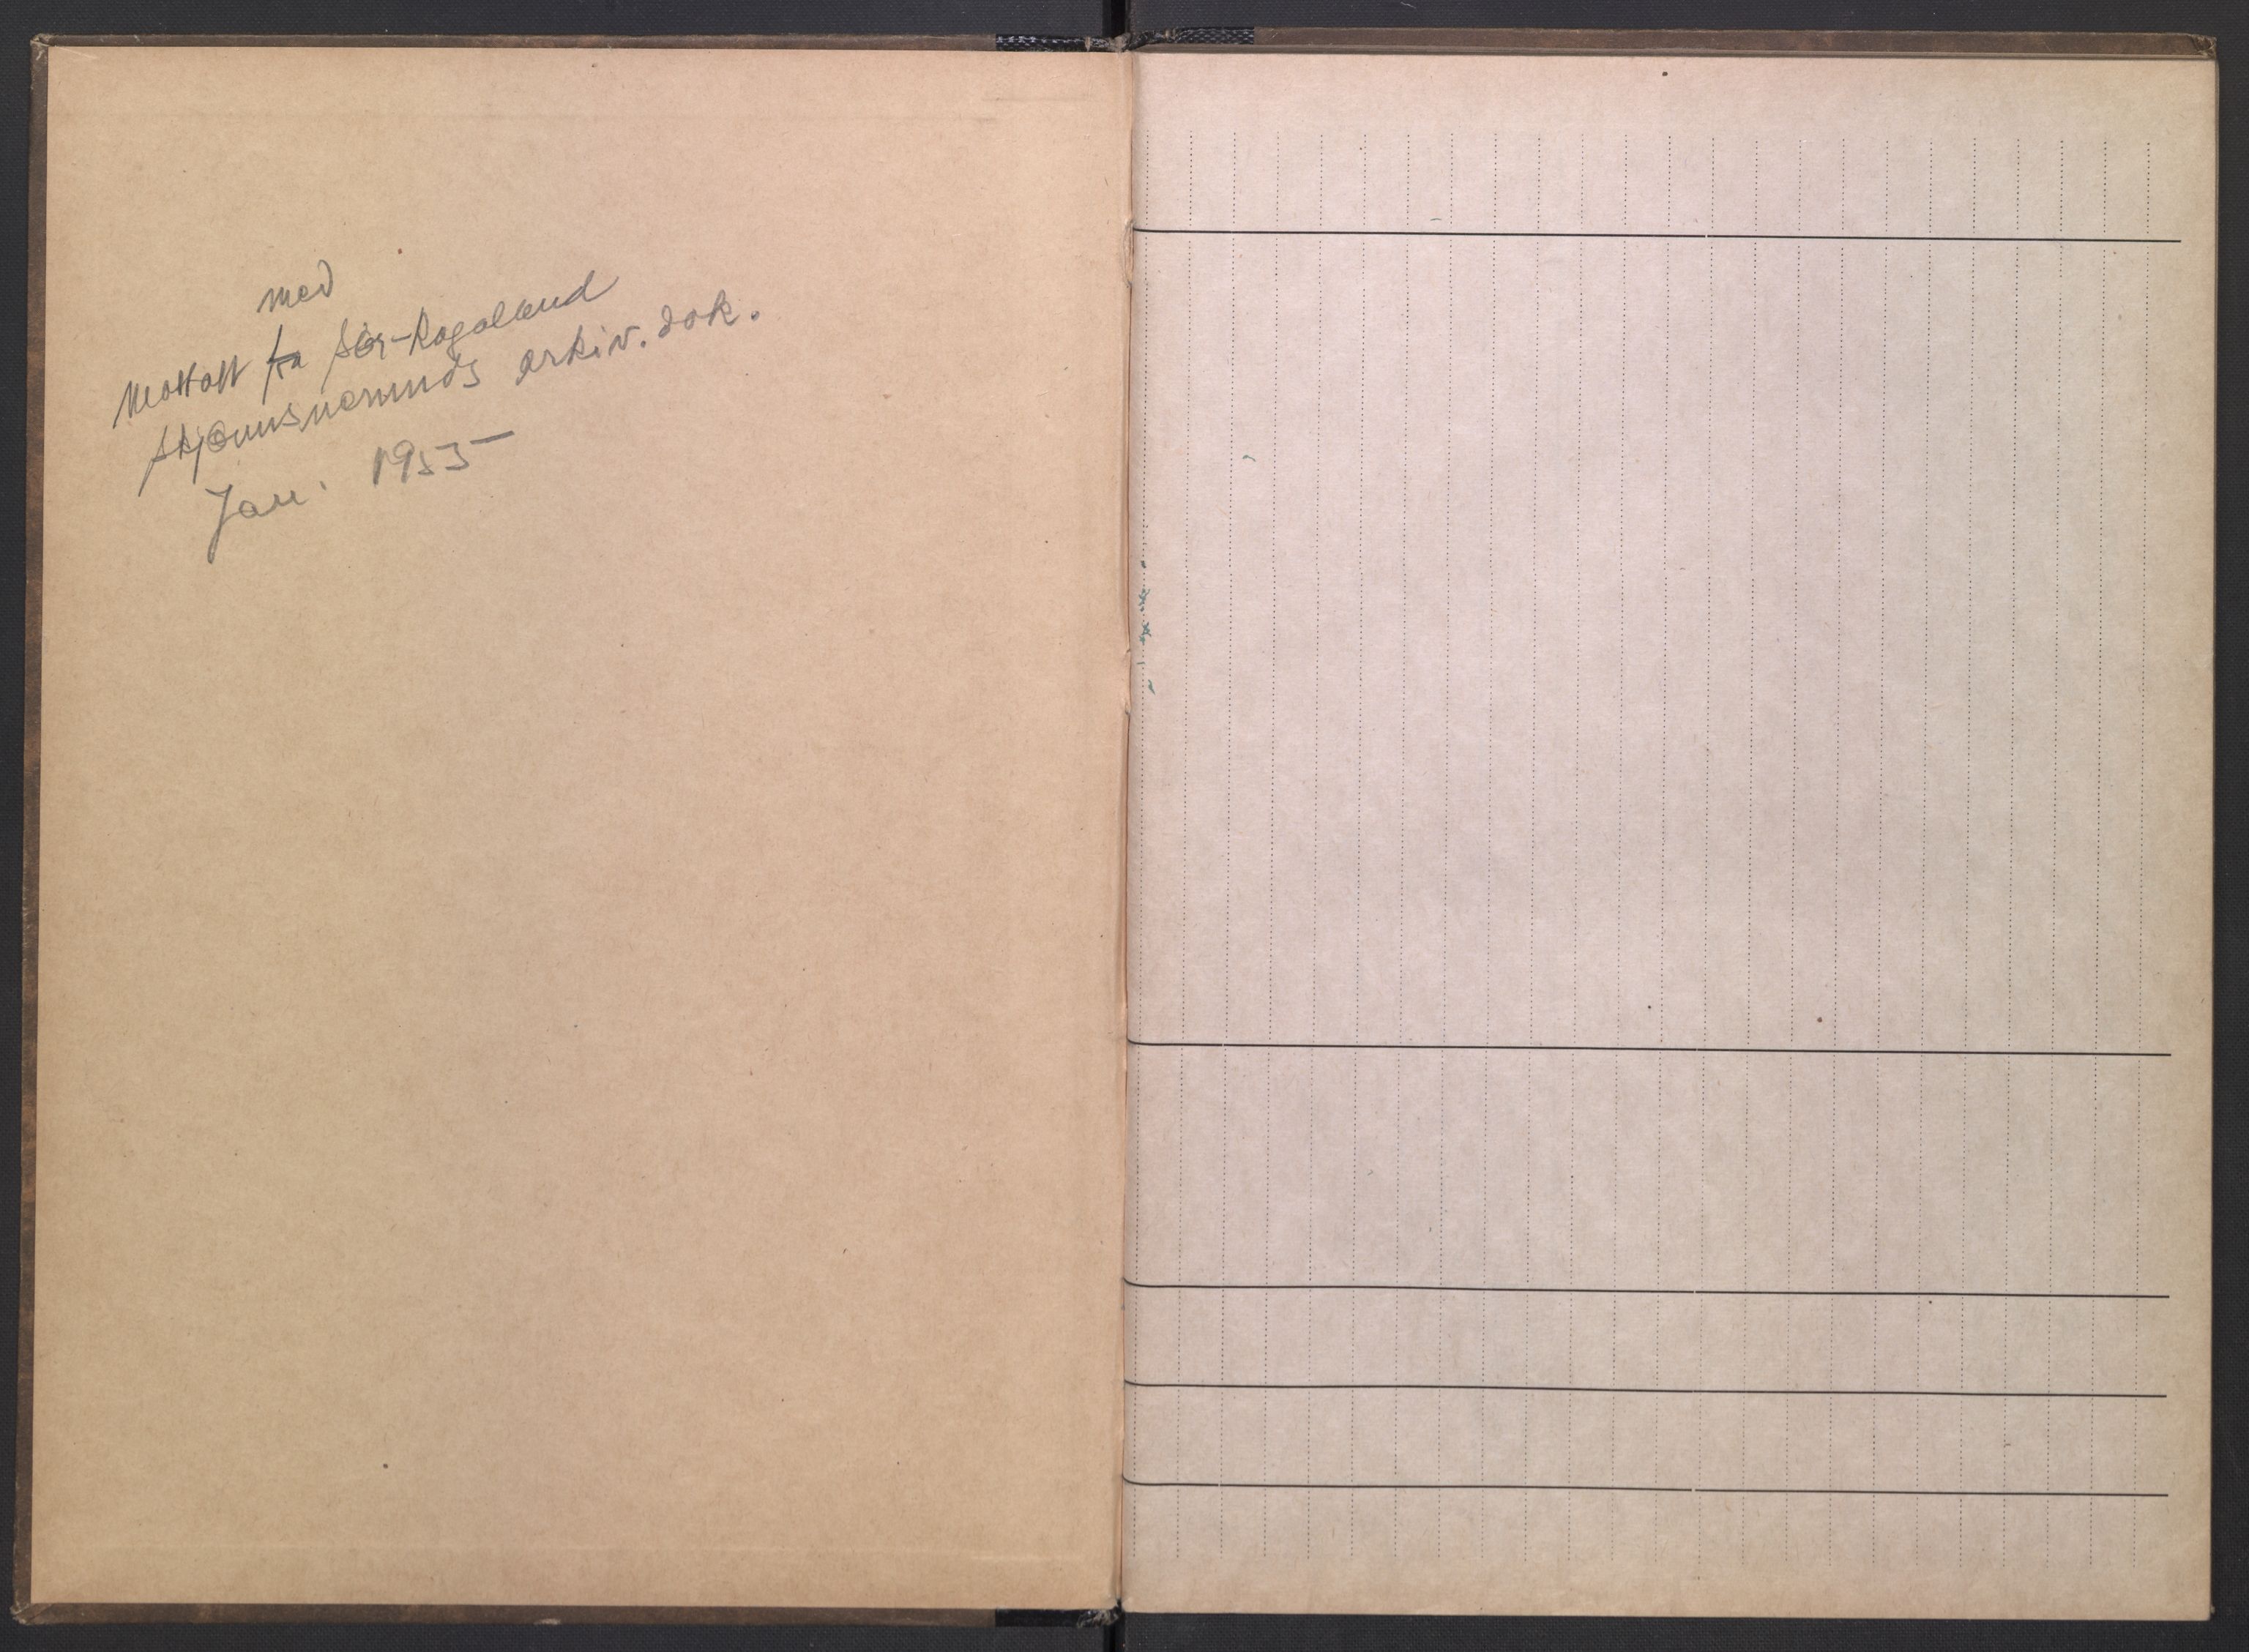 med
Mottatt fra Sør-Rogaland
skjønnsnemnds arkiv. dok.
Jan. 1955